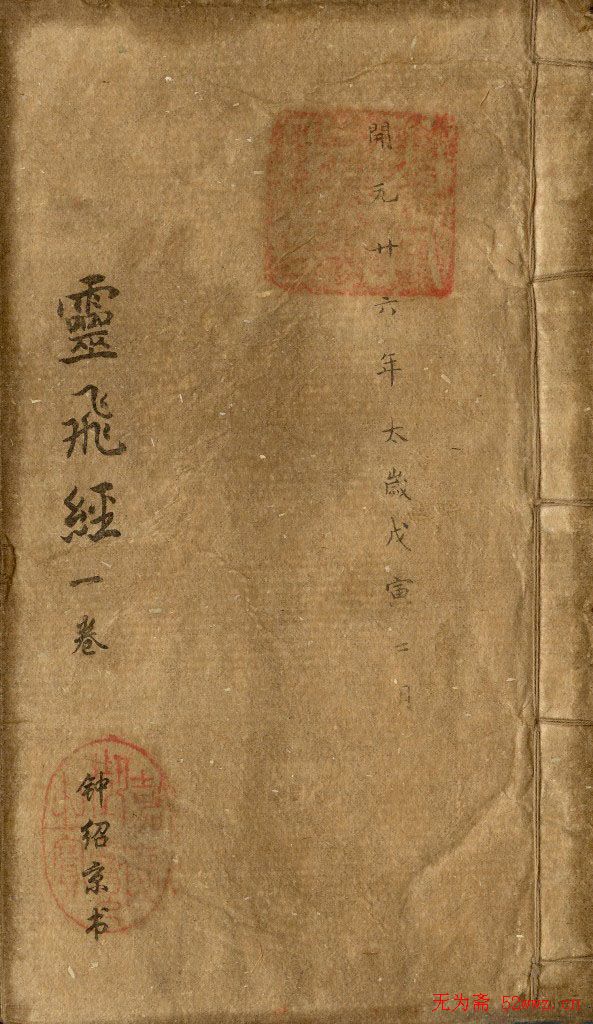 開元廿六年太歲戊寅二月
靈飛經一卷
钟绍京书
无为斋 52wwz.cn